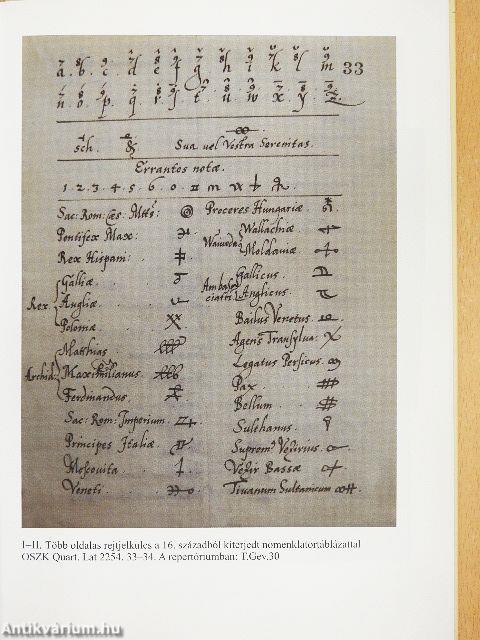 a. b. c. d e f g h i k l m 33
n o p q r s t u w x y z
sch. & Sua vel Vestra Serenitas.
Errantes notæ.
1. 2. 3. 4. 5. 6. 0.
Sac: Rom: Cæs. Mttis:
Pontifex Max:
Rex Hispan:
Rex
Galliæ
Angliæ
Polonæ
Archid:
Matthias
Maximilianus.
Ferdinandus
Sac: Rom: Imperium.
Principes Italiæ
Moscovita
Veneti
Proceres Hungariæ
Wallachiæ
Moldaviæ
Gallicus
Anglicus
Bailus Venetus
Agens Transylva:
Legatus Persicus
Pax
Bellum
Sulthanus
Suprem9 Vezirius
Vezir Bassæ
Sultanicum
I–II. Több oldalas rejtjelkulcs a 16. századból kiterjedt nomenklátortáblázattal
OSZK Quart. Lat 2254. 33–34. A repertóriumban: T.Gev.30
Antikvárium.hu